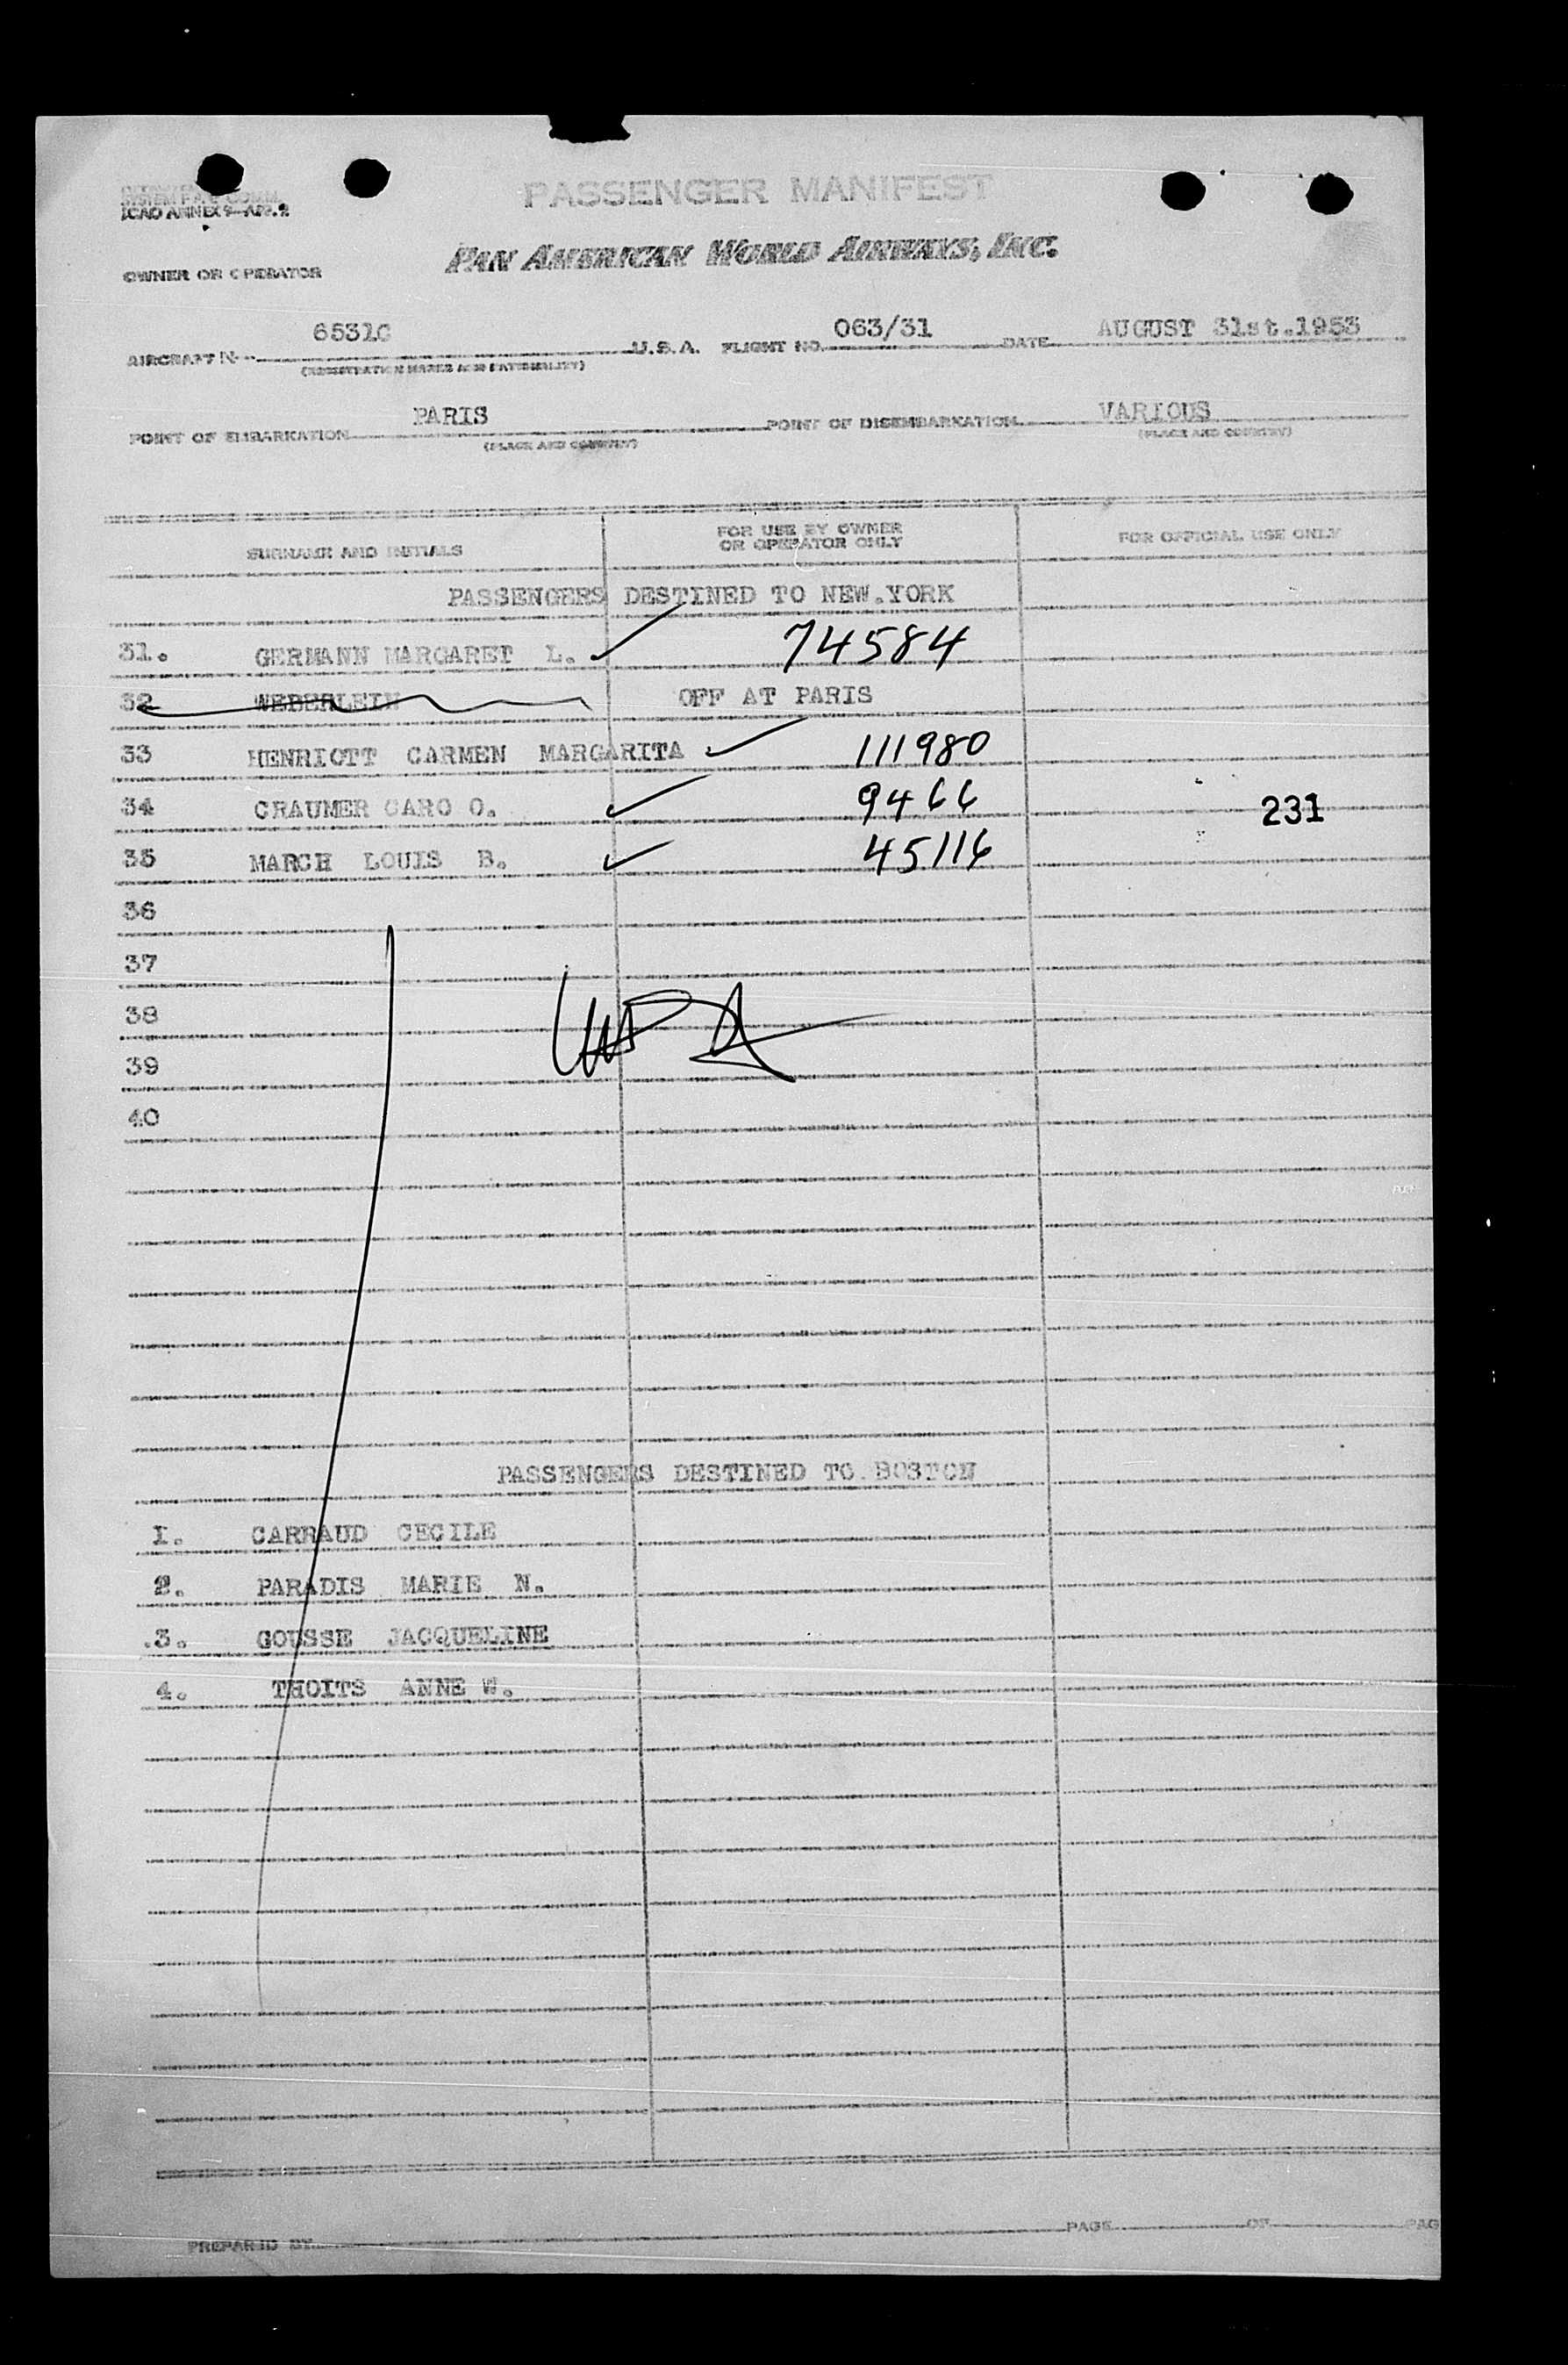 SYSTEM F.A.C COMM.
ICAO ANNEX 9—APP. 2
PASSENGER MANIFEST
PAN AMERICAN WORLD AIRWAYS, INC.
OWNER OR OPERATOR
AIRCRAFT N 6531C U.S.A. FLIGHT NO. 063/31 DATE AUGUST 31st.1953
(REGISTRATION MARKS AND NATIONALITY)
POINT OF EMBARKATION PARIS POINT OF DISEMBARKATION VARIOUS
(PLACE AND COUNTRY) (PLACE AND COUNTRY)
SURNAME AND INITIALS FOR USE BY OWNER OR OPERATOR ONLY FOR OFFICIAL USE ONLY
PASSENGERS DESTINED TO NEW.YORK
31. GERMANN MARGARET L. 74584
32 WEBERLEIN OFF AT PARIS
33 HENRIOTT CARMEN MARGARITA 111980
34 CRAUMER CARO O. 9466 231
35 MARCH LOUIS B. 45116
36
37
38
39
40
PASSENGERS DESTINED TO BOSTON
1. CARRAUD CECILE
2. PARADIS MARIE N.
.3. GOUSSE JACQUELINE
4. THOITS ANNE W.
PREPARED BY PAGE OF PAG